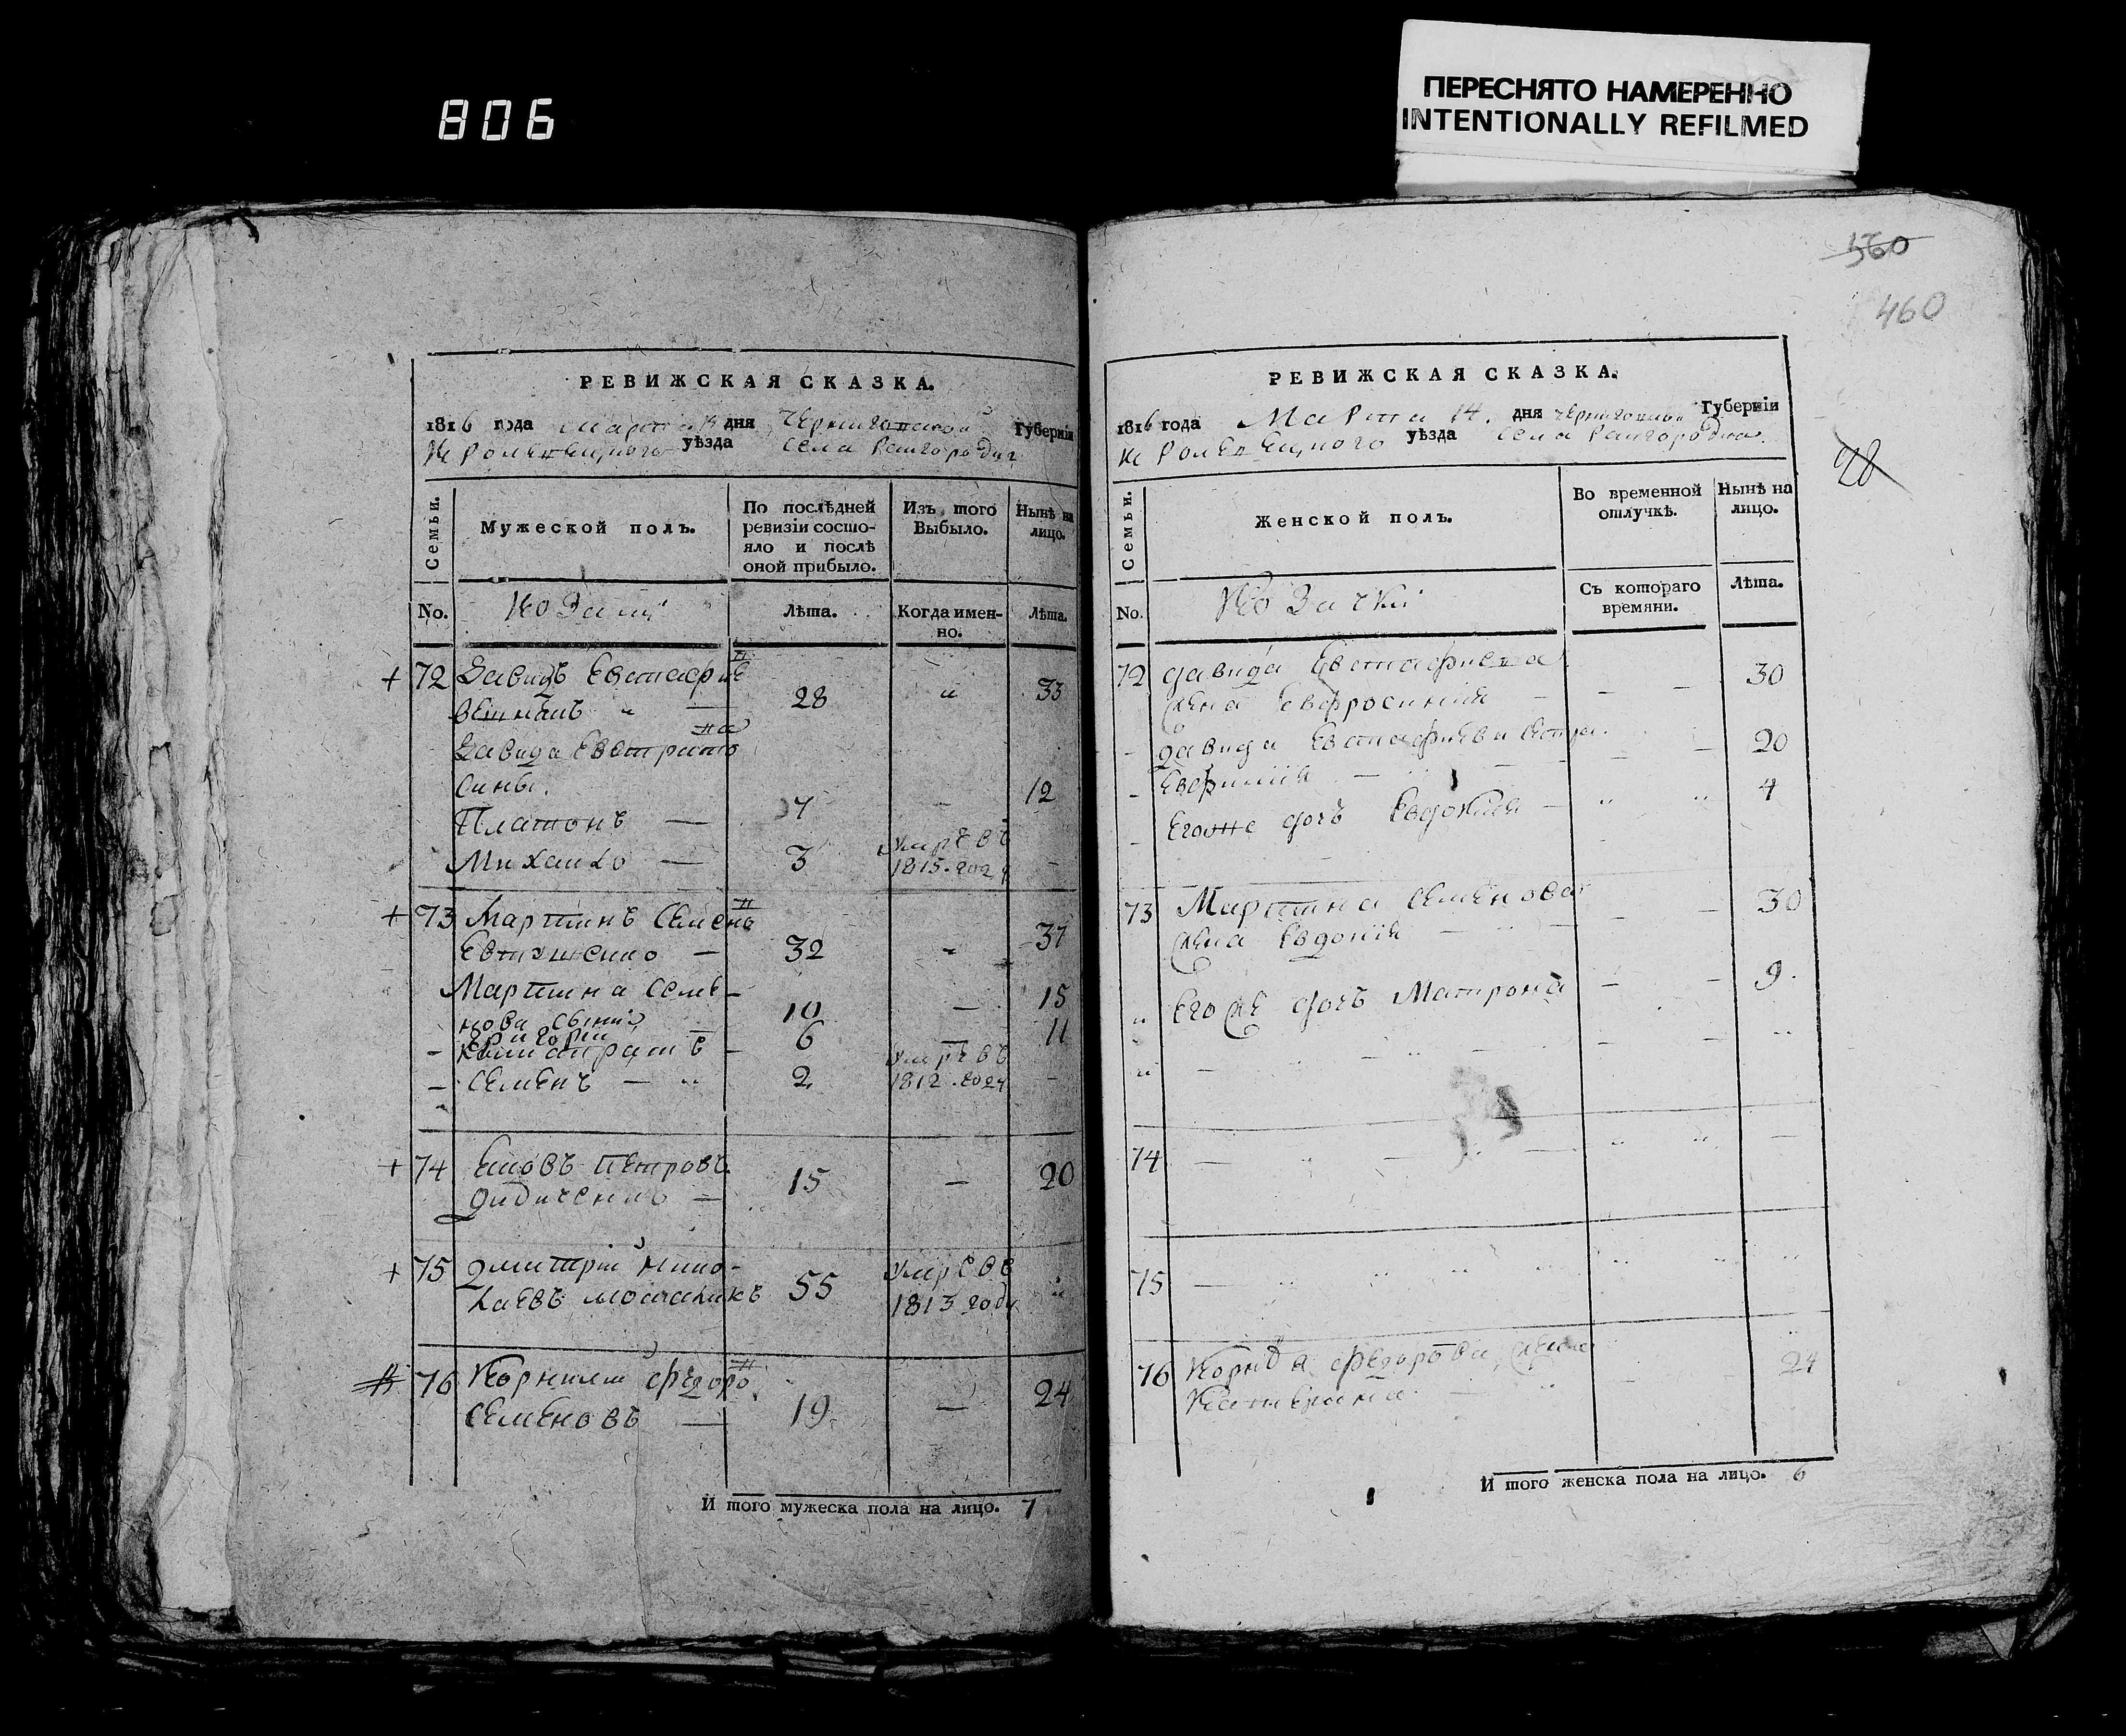 806
ПЕРЕСНЯТО НАМЕРЕННО
INTENTIONALLY REFILMED
560
460
28
РЕВИЖСКАЯ СКАЗКА.
1816 года Марта 14 дня Черниговской Губерніи
Кролевецкого уѣзда Села Райгородка
Семьи.
Мужеской полъ.
По послѣдней ревизіи состояло и послѣ оной прибыло.
Изъ того Выбыло.
Нынѣ на лицо.
No.
Козаки
Лѣта.
Когда именно.
Лѣта.
+ 72 Давидъ Евстафие
28 33
Давида Евстафиева
сины.
Платонъ — 7 — 12
Михайло — 3 умре въ
1815. году —
+ 73 Мартинъ Семеновъ
32 - 37
Мартина Семе-
нова сыни
Григорий 10 — 15
- 6 — 11
- Семенъ — 2 умре въ
1812. году —
+ 74 Яковъ Петровъ
15 — 20
+ 75 Дмитрій Нико-
лаевъ 55 умре въ
1813 году
76 Корнилій Федоровъ
Семеновъ — 19 — 24
И того мужеска пола на лицо. 7
РЕВИЖСКАЯ СКАЗКА.
1816 года Марта 14. дня Черниговской Губерніи
Кролевецкого уѣзда Села Райгородка
Семьи.
Женской полъ.
Во временной отлучкѣ.
Нынѣ на лицо.
No.
Козачки
Съ котораго времяни.
Лѣта.
72 Давида Евстафиева
жена Евфросиния — — 30
Давида Евстафиева сестра
Евфимия — — 20
Егоже дочъ Евдокия — 4
73 Мартина Семенова
жена Евдокия — — 30
Его же дочъ Матрона — — 9
74 —
75 —
76 Корнилия Федорова жена
Катерина 24
И того женска пола на лицо. 6